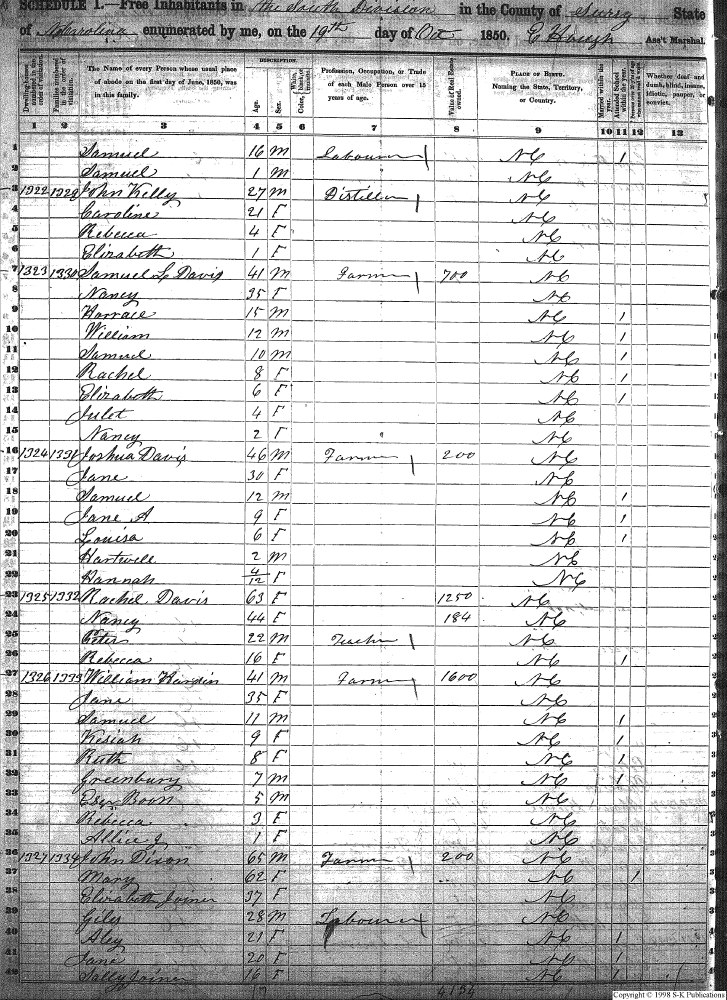 SCHEDULE I.—Free Inhabitants in the South Division in the County of Surry State
of N Carolina enumerated by me, on the 19th day of Oct 1850. Ass't Marshal.
DESCRIPTION.
The Name of every Person whose usual place of abode on the first day of June, 1850, was in this family.
Age.
Sex.
Profession, Occupation, or Trade of each Male Person over 15 years of age.
Value of Real Estate owned.
PLACE OF BIRTH. Naming the State, Territory, or Country.
Married within the year.
Attended School within the year.
Whether deaf and dumb, blind, insane, idiotic, pauper, or convict.
1 2 3 4 5 6 7 8 9 10 11 12 13
1 Samuel 16 M Labourer NC 1
2 Samuel 1 M NC
3 1322 1329 John Kelly 27 M Distiller NC
4 Caroline 21 F NC
5 Rebecca 4 F NC
6 Elizabeth 1 F NC
7 1323 1330 Samuel L Davis 41 M Farmer 700 NC
8 Nancy 35 F NC
9 Horrace 15 M NC 1
10 William 12 M NC 1
11 Samuel 10 M NC 1
12 Rachel 8 F NC 1
13 Elizabeth 6 F NC 1
14 Julet 4 F NC
15 Nancy 2 F NC
16 1324 1331 Joshua Davis 46 M Farmer 200 NC
17 Jane 30 F NC
18 Samuel 12 M NC 1
19 Jane A 9 F NC 1
20 Louisa 6 F NC 1
21 Hartwell 2 M NC
22 Hannah 4/12 F NC
23 1325 1332 Rachel Davis 63 F 1250 NC
24 Nancy 44 F 184 NC
25 Peter 22 M Teacher NC
26 Rebecca 16 F NC 1
27 1326 1333 William Hardin 41 M Farmer 1600 NC
28 Jane 35 F NC
29 Samuel 11 M NC 1
30 Kesiah 9 F NC 1
31 Ruth 8 F NC 1
32 Greenbury 7 M NC 1
33 Boon 5 M NC
34 Rebecca 3 F NC
35 Allice J 1 F NC
36 1327 1334 John Dixon 65 M Farmer 200 NC
37 Mary 62 F NC 1
38 Elizabeth Joiner 37 F NC
39 Giles 28 M Labourer NC
40 Aley 21 F NC 1
41 Jane 20 F NC 1
42 Sally Joiner 16 F NC 1
Copyright © 1998 S-K Publications